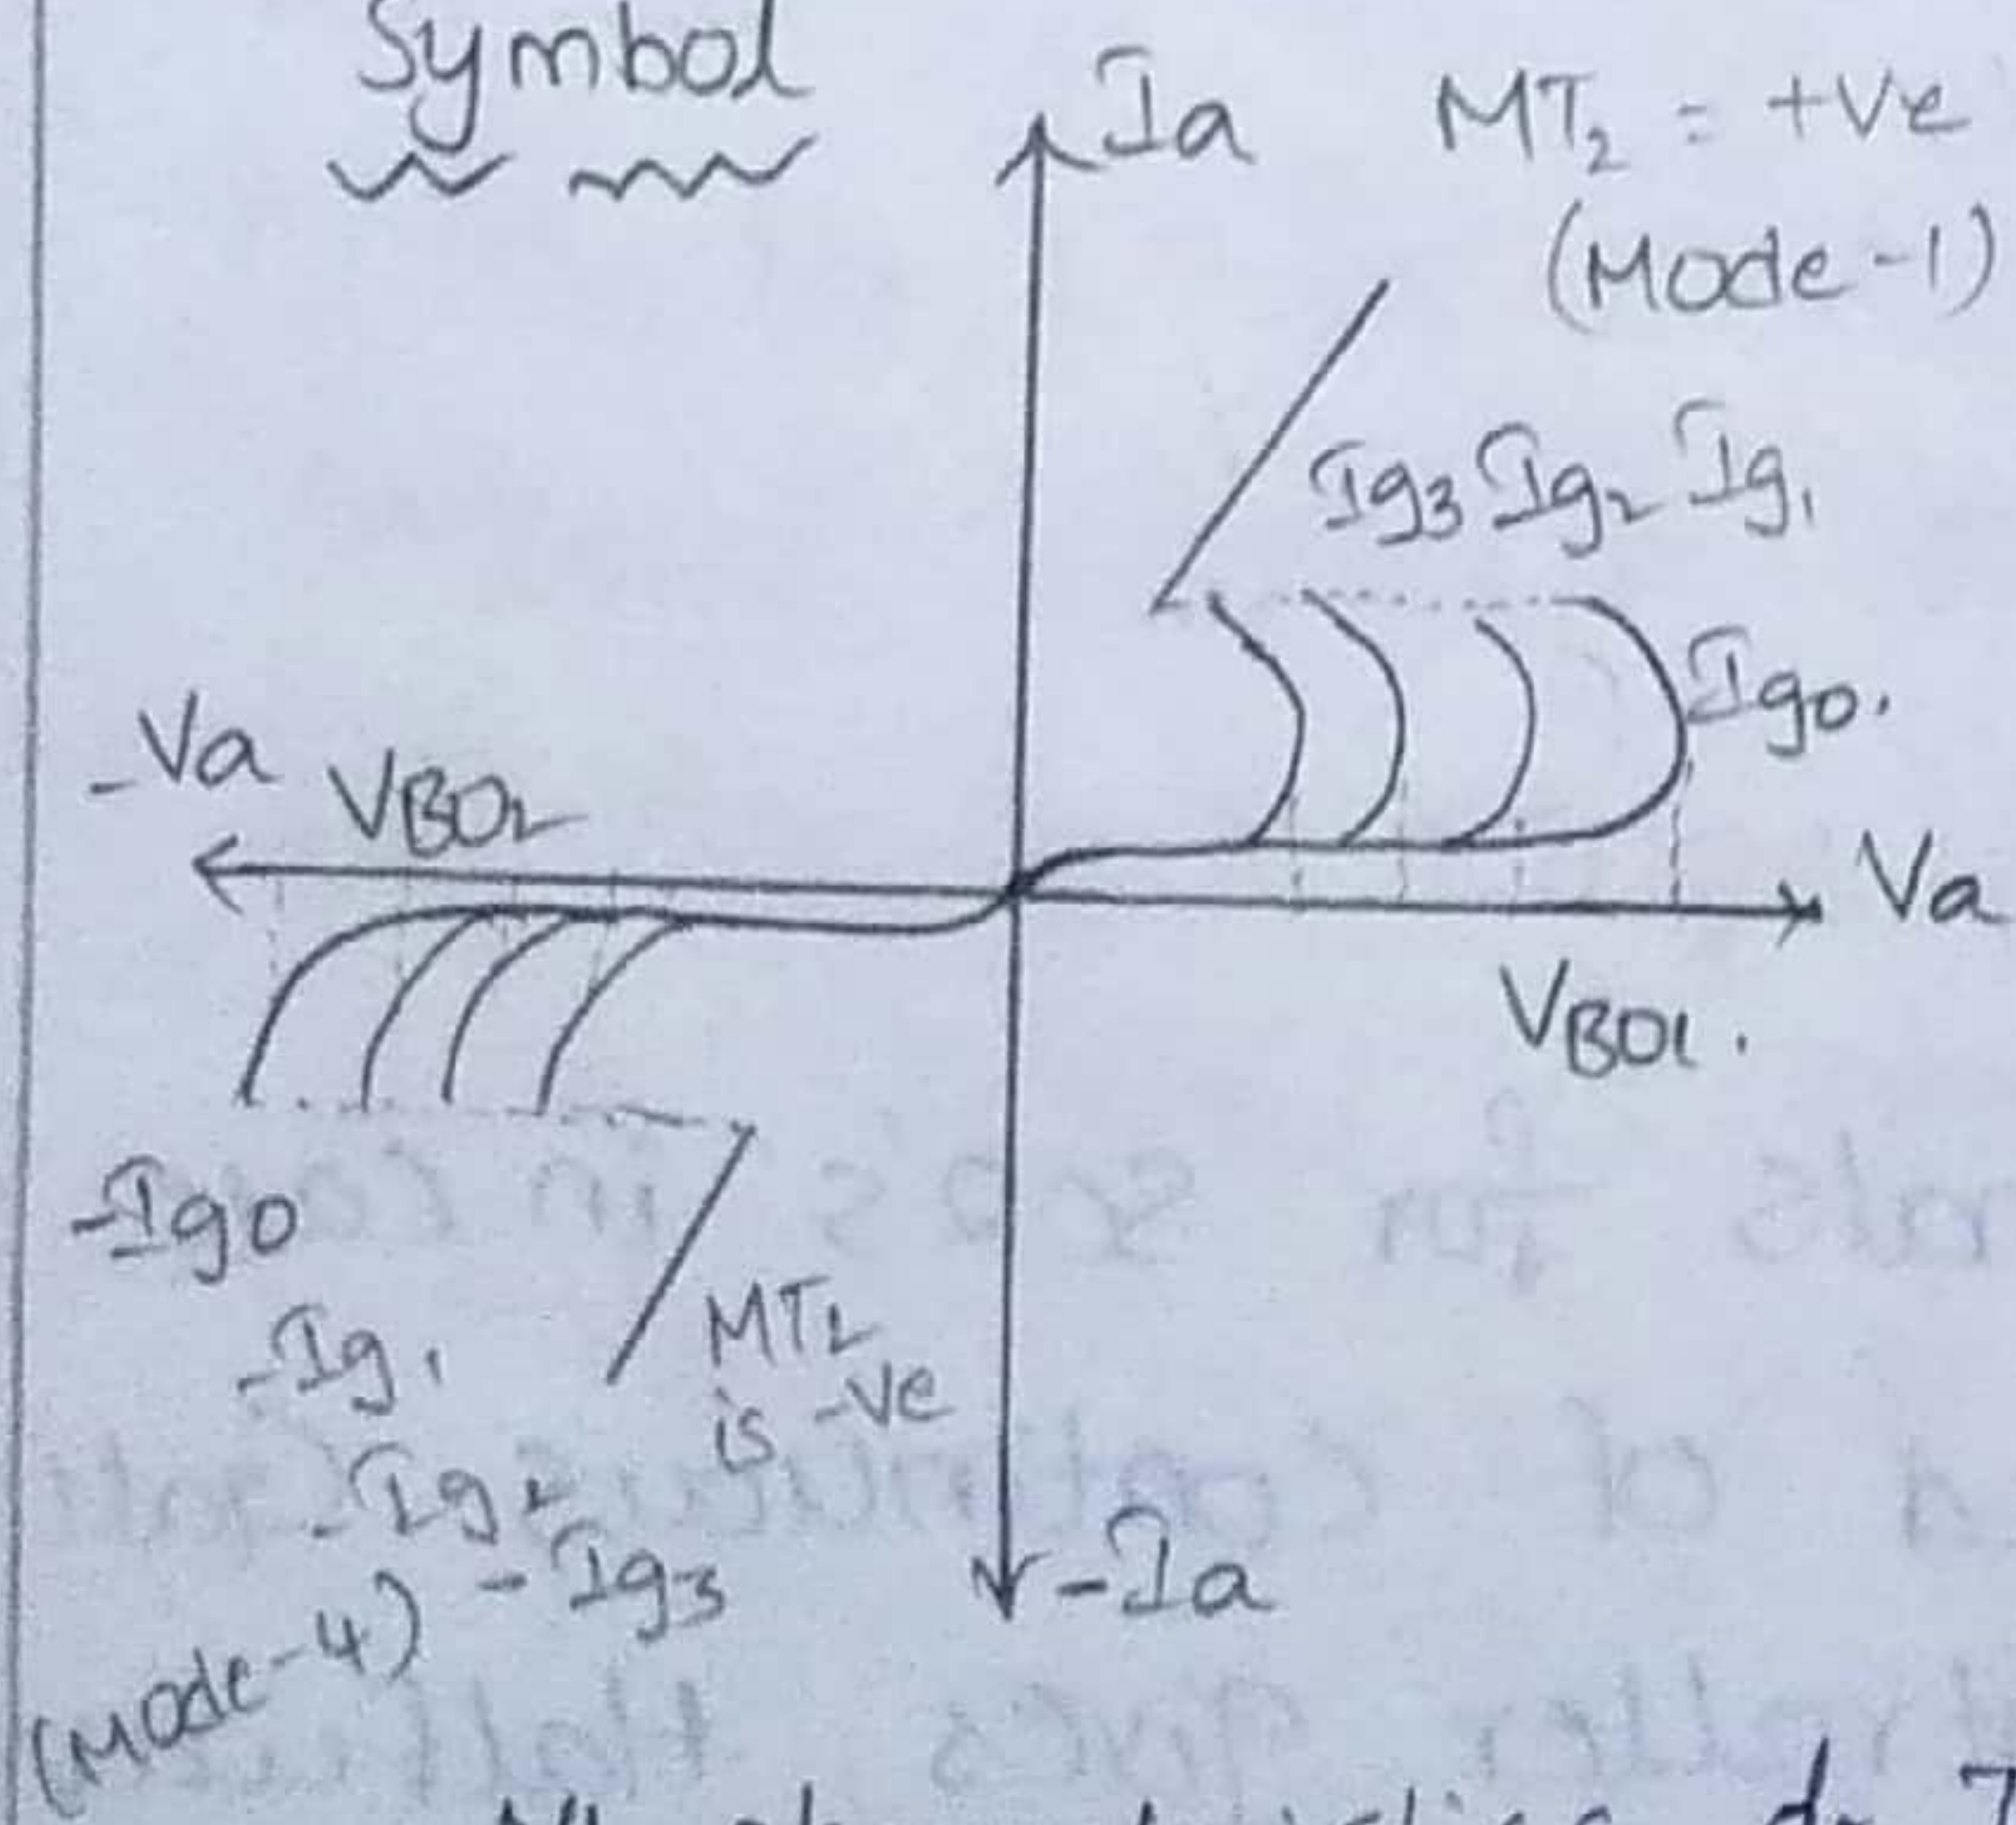 Symbol
Ia
MT2 = +Ve
(Mode-1)
Ig3 Ig2 Ig1
Ig0.
-Va
VBO2
Va
VBO1.
-Ig0
-Ig1
-Ig2
-Ig3
(Mode-4)
MT2
is -Ve
-Ia